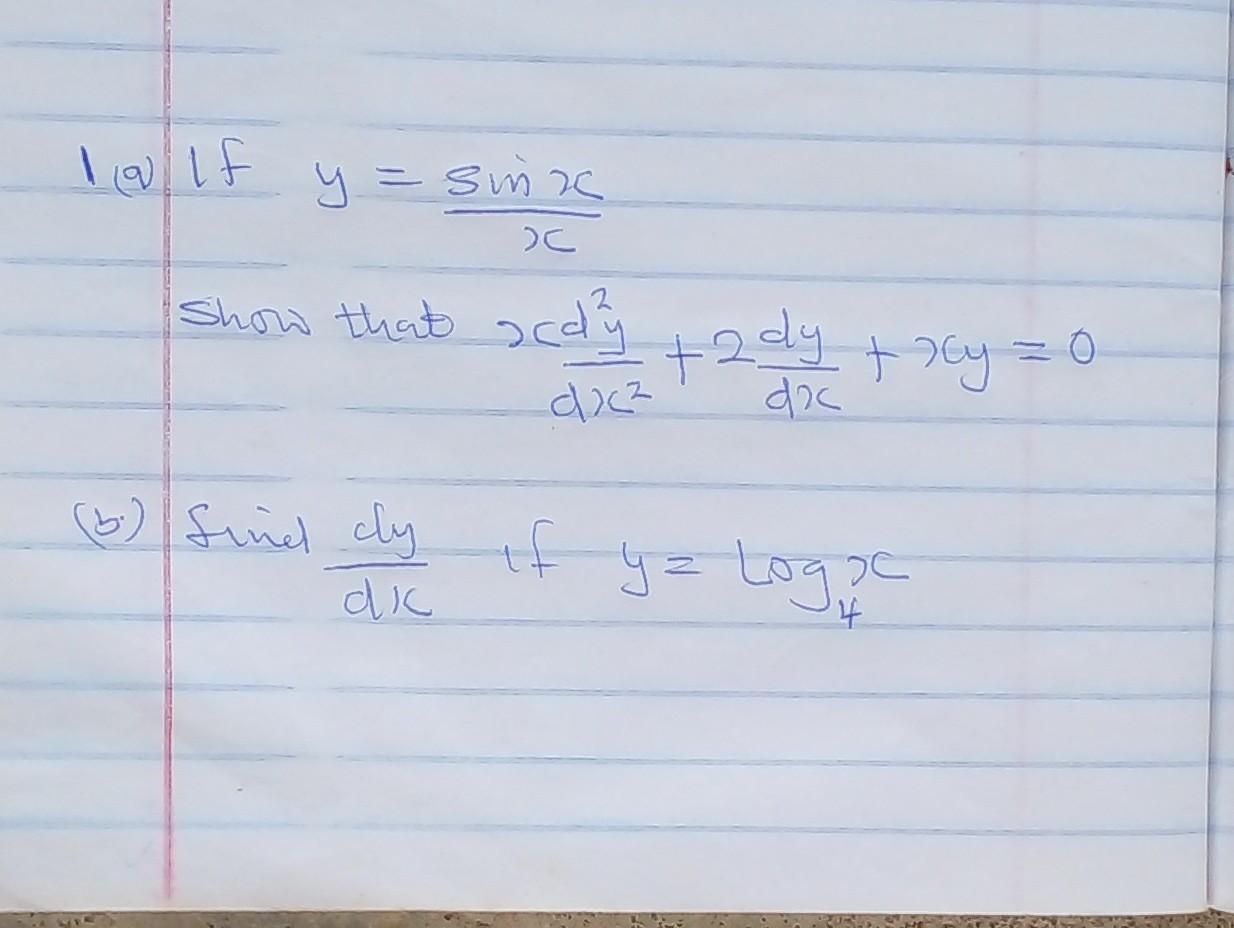 1(a) If y = sin x / x
Show that x d²y/dx² + 2 dy/dx + xy = 0
(b.) find dy/dx if y = Log₄ x